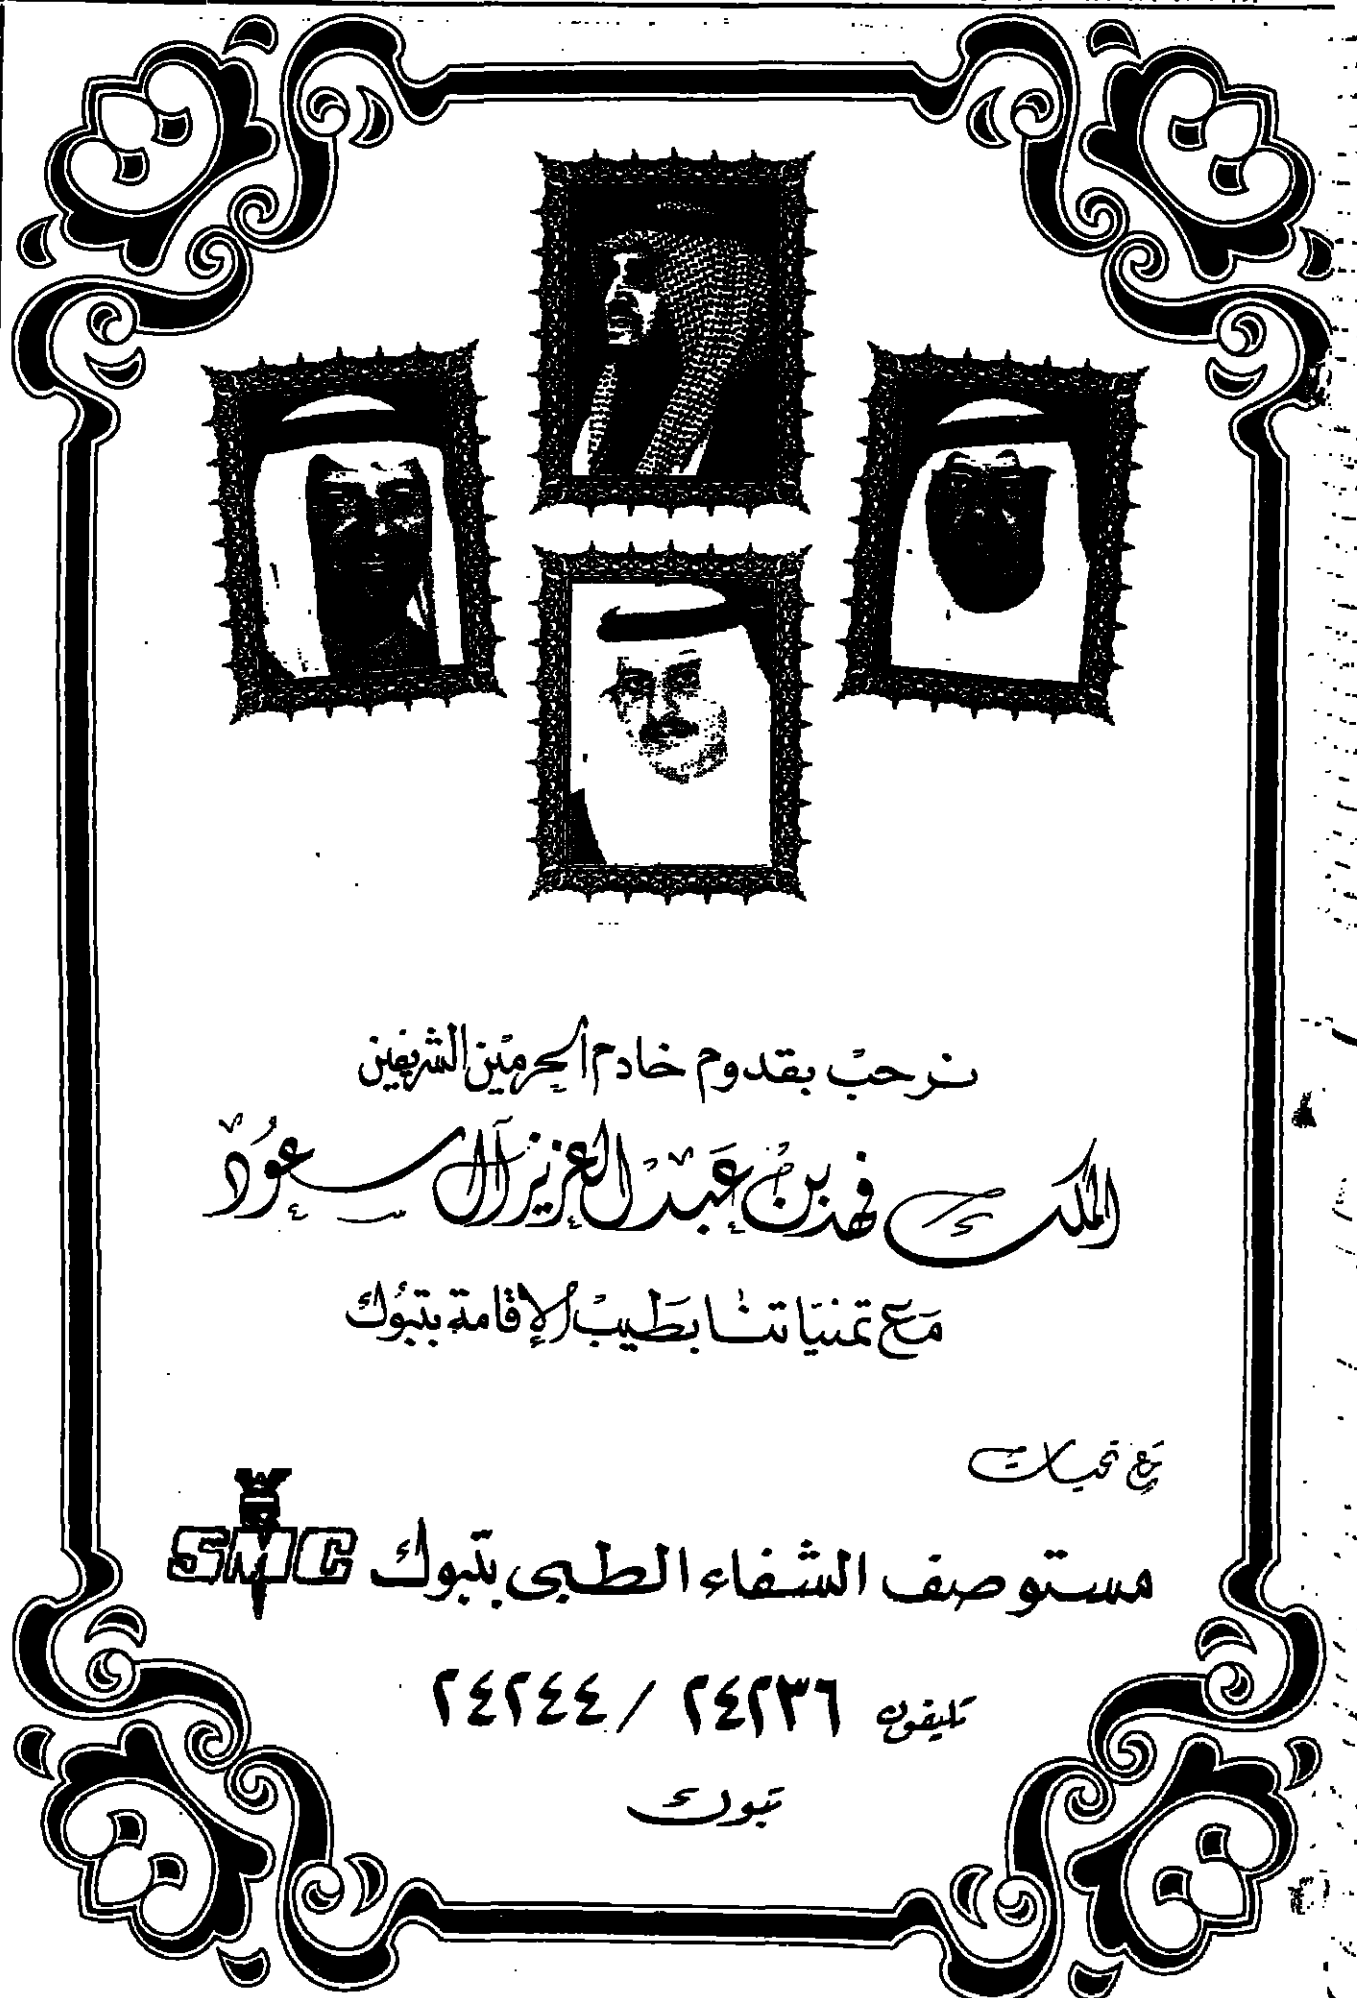 نرحب بقدوم خادم الحرمين الشريفين
الملك فهد بن عبد العزيز آل سعود
مع تمنياتنا بطيب الإقامة بتبوك
مع تحيات
مستوصف الشفاء الطبي بتبوك SMC
تليفون ٢٤٢٣٦ / ٢٤٢٤٤
تبوك